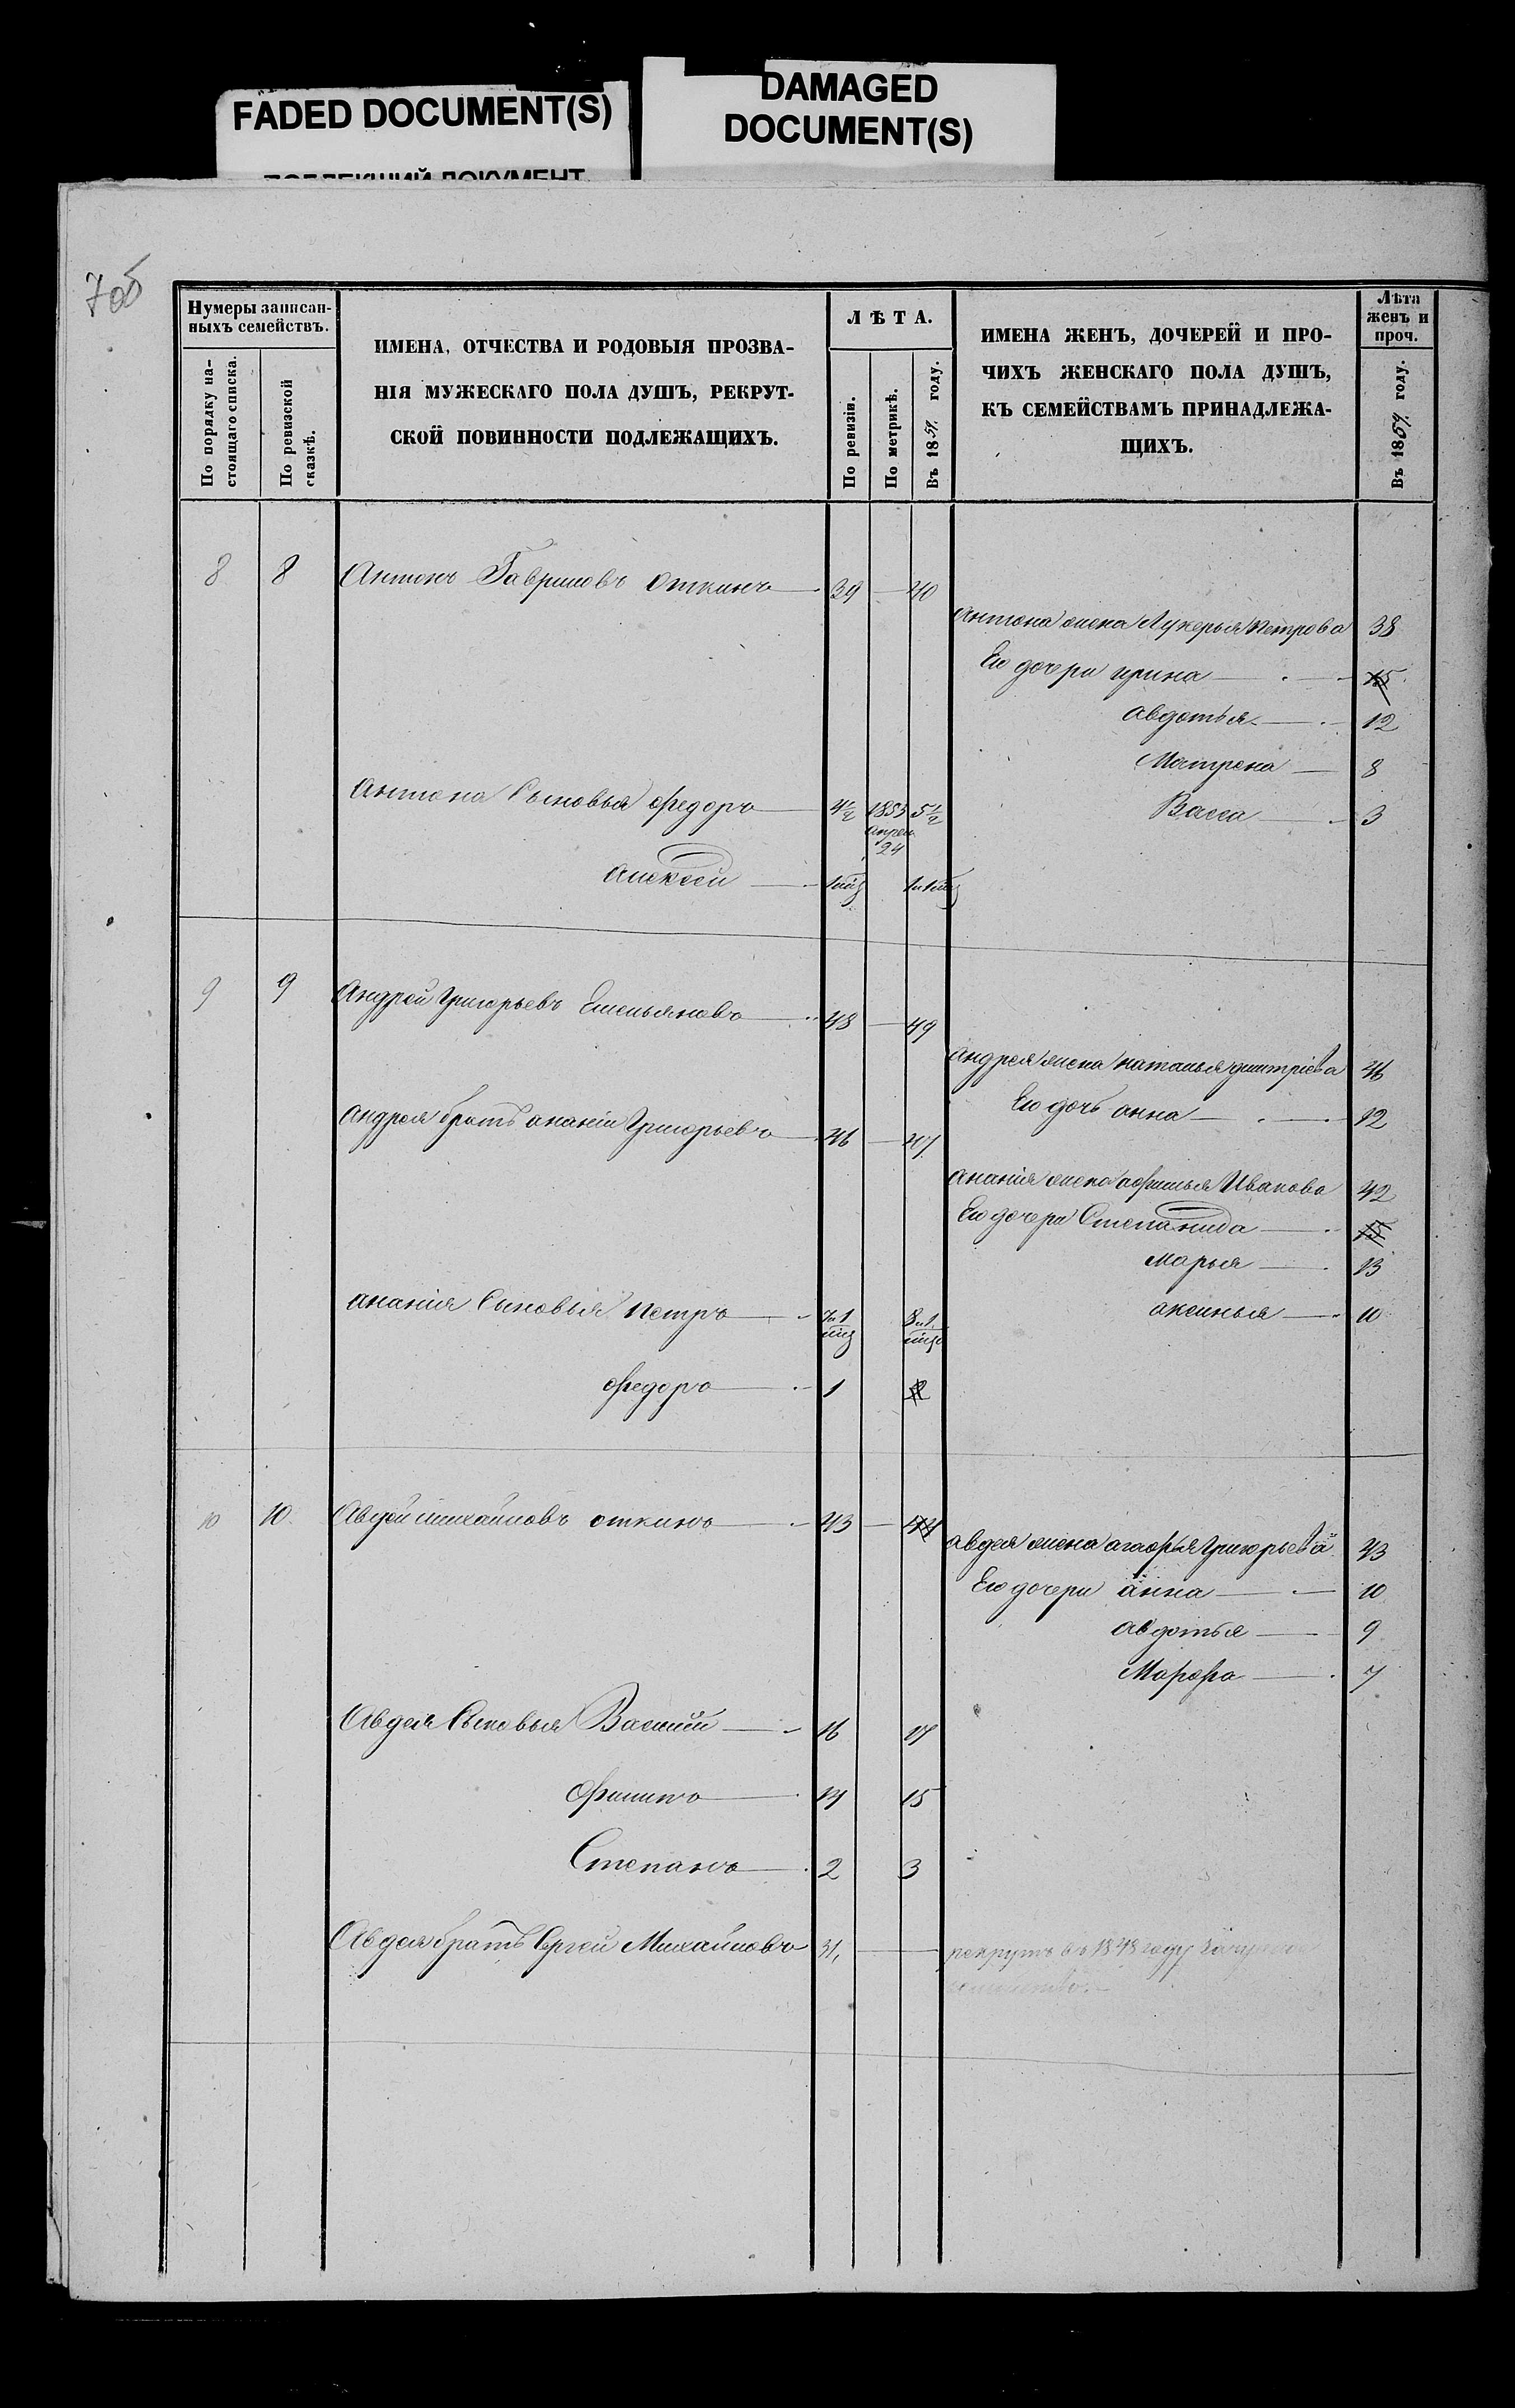 FADED DOCUMENT(S)
DAMAGED
DOCUMENT(S)
70б
Нумеры записан-
ныхъ семействъ.
По порядку на-
стоящаго списка.
По ревизской
сказкѣ.
ИМЕНА, ОТЧЕСТВА И РОДОВЫЯ ПРОЗВА-
НІЯ МУЖЕСКАГО ПОЛА ДУШЪ, РЕКРУТ-
СКОЙ ПОВИННОСТИ ПОДЛЕЖАЩИХЪ.
ЛѢТА.
По ревизіи.
По метрикѣ.
Въ 1857 году.
ИМЕНА ЖЕНЪ, ДОЧЕРЕЙ И ПРО-
ЧИХЪ ЖЕНСКАГО ПОЛА ДУШЪ,
КЪ СЕМЕЙСТВАМЪ ПРИНАДЛЕЖА-
ЩИХЪ.
Лѣта
женъ и
проч.
Въ 1857 году.
8 8 Антонъ Гавриловъ Откинъ 39 40
Антона жена Лукерья Петрова 38
Ею дочери ирина 15
авдотья 12
Матрена 8
Антона Сыновья федоръ 4½ 1853 5½ Васса 3
апрел.
24
Алексей 1 мѣ
9 9 Андрей Григорьевъ Емельяновъ 48 49
Андрея жена наталья дмитріева 46
Ею дочь анна 12
Андрея братъ ананій Григорьевъ 46 47
Ананія жена Иванова 42
Ею дочери Степанида 15
Марья 13
Ананія Сыновья Петръ 7 и 1 8 и 1 аксинья 10
федоръ 1 2
10 10 Авдей михайловъ откинъ 43 44
авдея жена агафья Григорьева 43
Ею дочери анна 10
авдотья 9
Марфа 7
Авдея Сыновья Василій 16 17
Филипъ 14 15
Степанъ 2 3
Авдея братъ Сергей Михайловъ 31, рекрутъ въ 1848 году за
семейство.